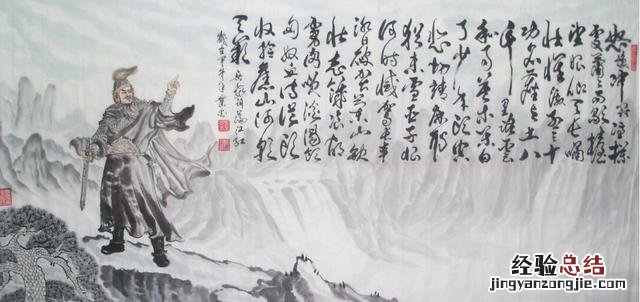 怒发冲冠凭栏
处潇潇雨歇抬
望眼仰天长啸
壮怀激烈三十
功名尘与土八
千里路云
和月莫等闲白
了少年头空
悲切靖康耻
犹未雪臣子恨
何时灭驾长车
踏破贺兰山缺
壮志饥餐胡
虏肉笑谈渴饮
匈奴血待从头
收拾旧山河朝
天阙 岳飞词满江红
岁在甲午年
经验总结
jingyanzongjie.com